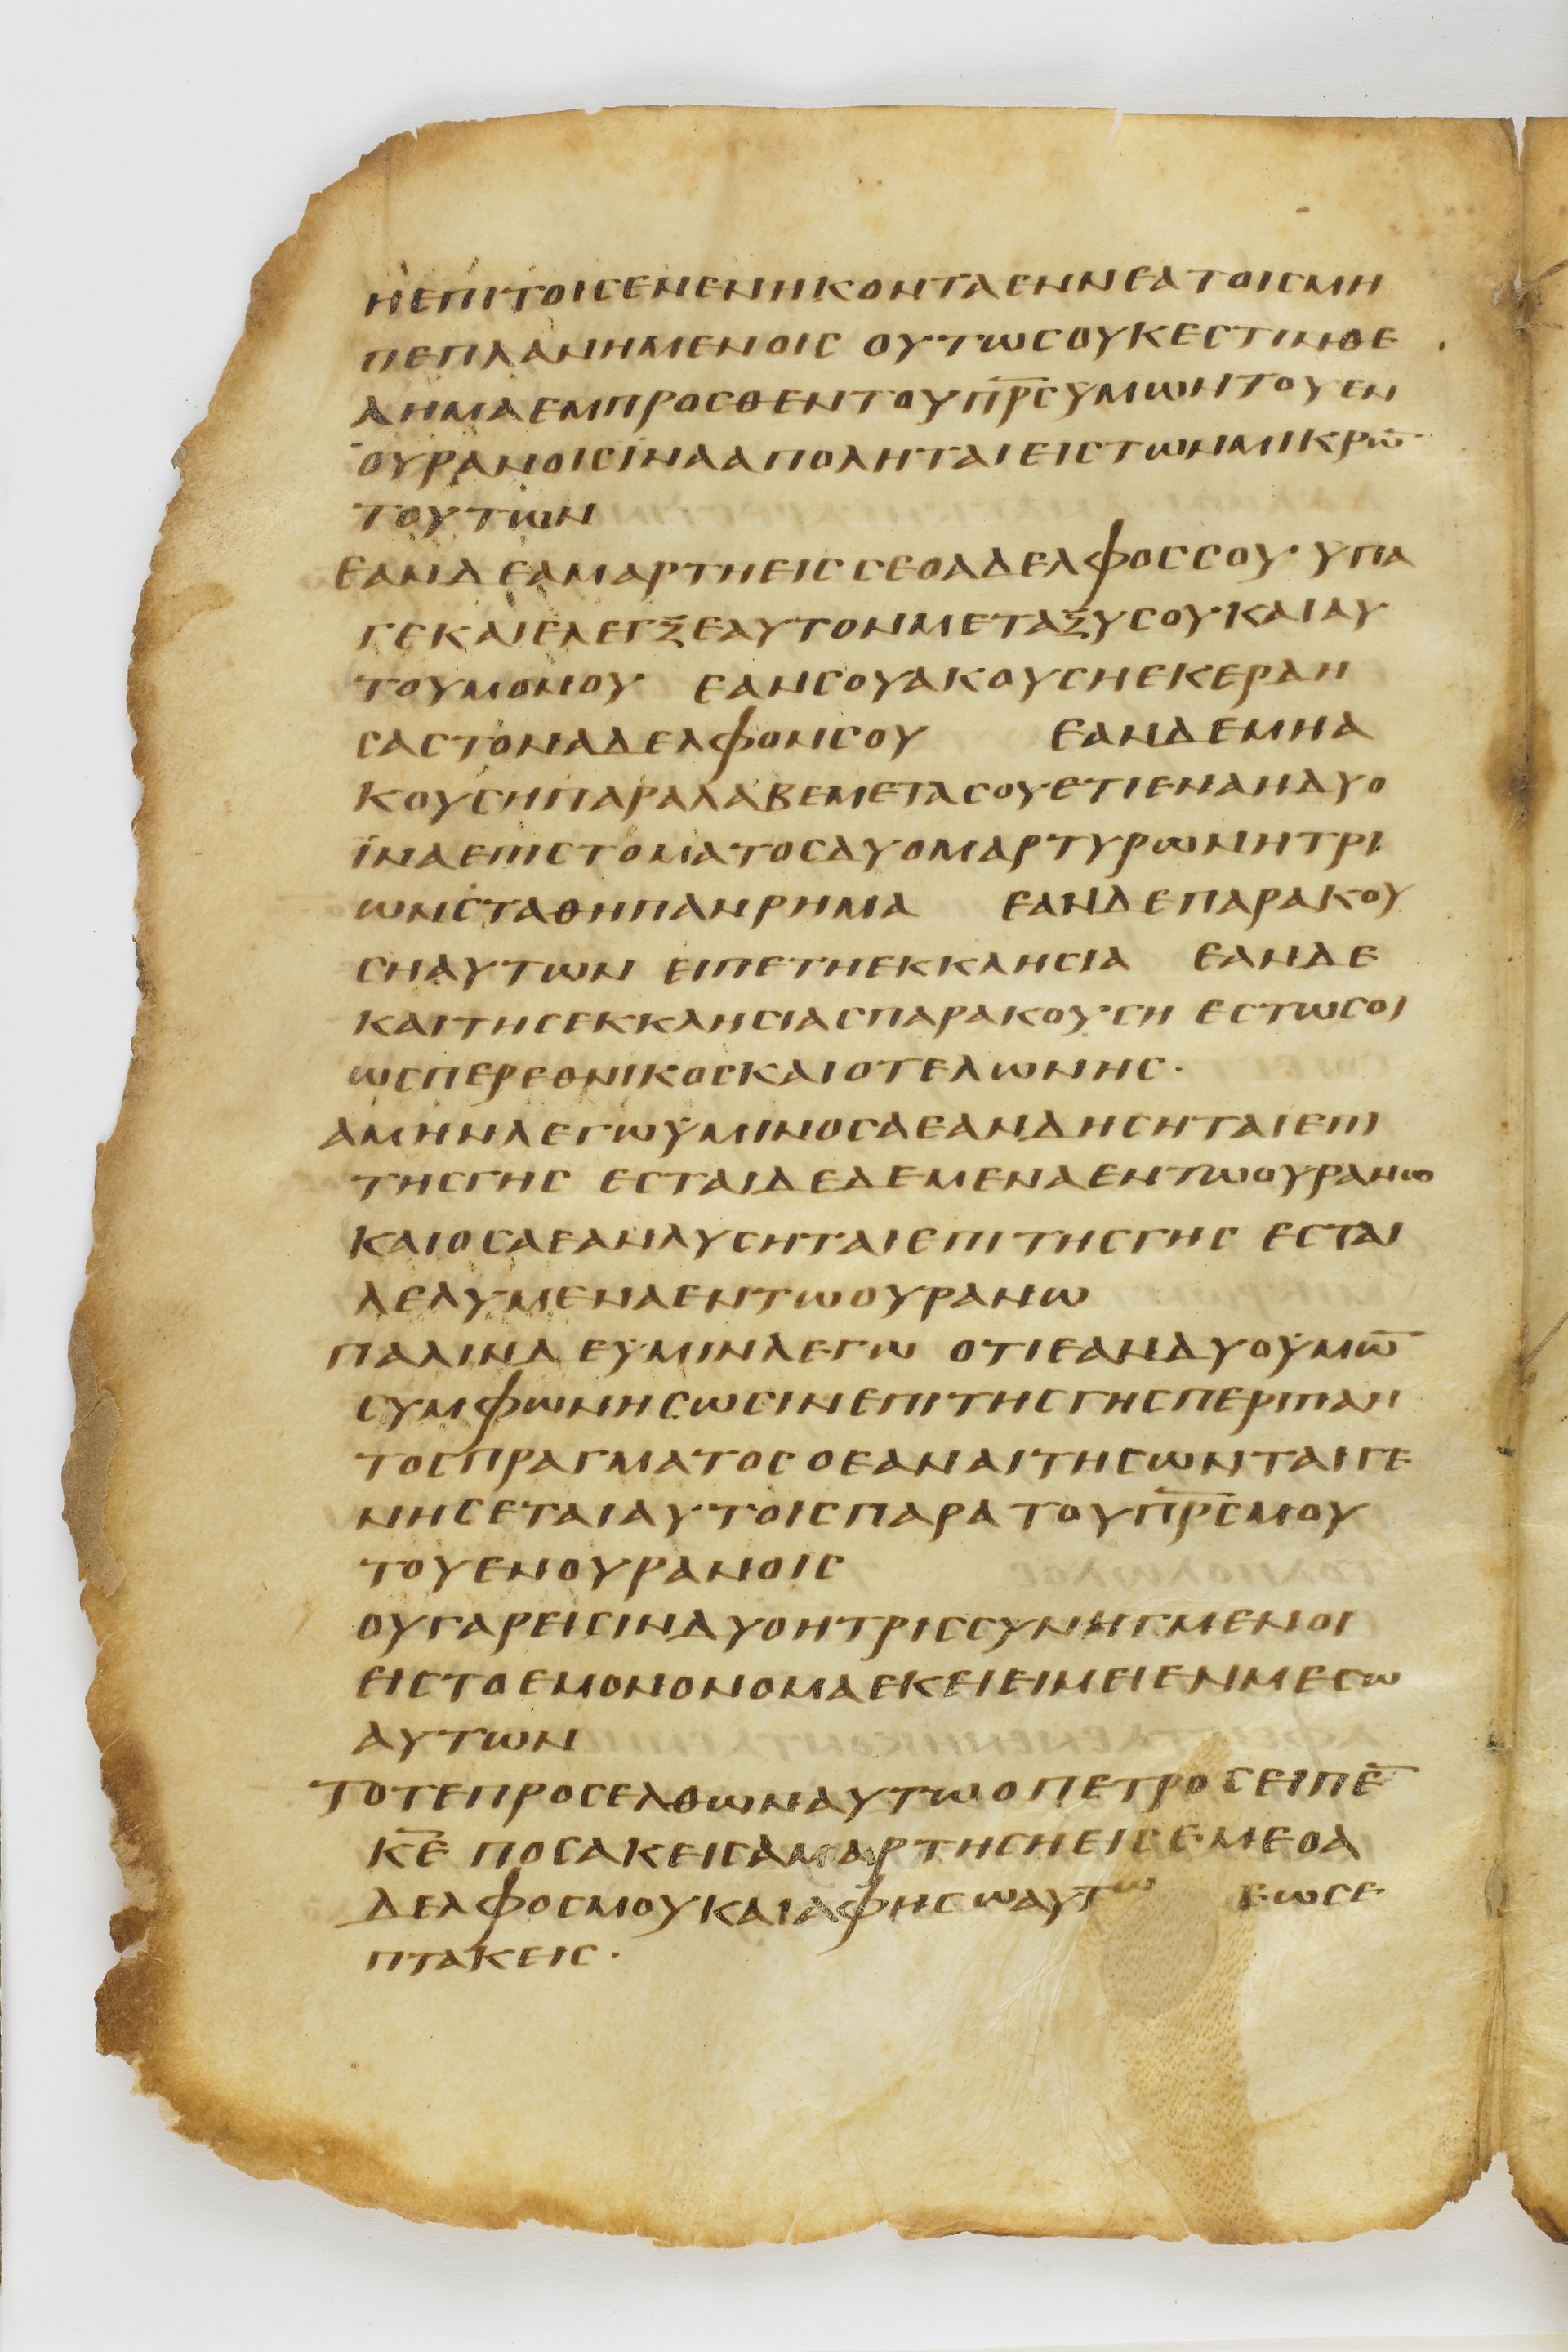 ΗΕΠΙΤΟΙСΕΝΕΝΗΚΟΝΤΑΕΝΝΕΑΤΟΙСΜΗ
ΠΕΠΛΑΝΗΜΕΝΟΙС ΟΥΤωСΟΥΚΕСΤΙΝΘΕ
ΛΗΜΑΕΜΠΡΟСΘΕΝΤΟΥΠ̅Ρ̅С̅ΥΜωΝΤΟΥΕΝ
ΟΥΡΑΝΟΙСΪΝΑΑΠΟΛΗΤΑΙΕΙСΤωΝΜΙΚΡω̅
ΤΟΥΤωΝ
ΕΑΝΔΕΑΜΑΡΤΗΕΙССΕΟΑΔΕΛΦΟССΟΥ· ΥΠΑ
ΓΕΚΑΙΕΛΕΓΞΕΑΥΤΟΝΜΕΤΑΞΥСΟΥΚΑΙΑΥ
ΤΟΥΜΟΝΟΥ ΕΑΝСΟΥΑΚΟΥСΗΕΚΕΡΔΗ
СΑСΤΟΝΑΔΕΛΦΟΝСΟΥ ΕΑΝΔΕΜΗΑ
ΚΟΥСΗΠΑΡΑΛΑΒΕΜΕΤΑСΟΥΕΤΙΕΝΑΗΔΥΟ
ΪΝΑΕΠΙСΤΟΜΑΤΟСΔΥΟΜΑΡΤΥΡωΝΗΤΡΙ
ωΝСΤΑΘΗΠΑΝΡΗΜΑ ΕΑΝΔΕΠΑΡΑΚΟΥ
СΗΑΥΤωΝ ΕΙΠΕΤΗΕΚΚΛΗСΙΑ ΕΑΝΔΕ
ΚΑΙΤΗСΕΚΚΛΗСΙΑСΠΑΡΑΚΟΥСΗ ΕСΤωСΟΙ
ωСΠΕΡΕΘΝΙΚΟСΚΑΙΟΤΕΛωΝΗС·
ΑΜΗΝΛΕΓωΫΜΙΝΟСΑΕΑΝΔΗСΗΤΑΙΕΠΙ
ΤΗСΓΗС ΕСΤΑΙΔΕΔΕΜΕΝΑΕΝΤωΟΥΡΑΝω
ΚΑΙΟСΑΕΑΝΛΥСΗΤΑΙΕΠΙΤΗСΓΗС ΕСΤΑΙ
ΛΕΛΥΜΕΝΑΕΝΤωΟΥΡΑΝω
ΠΑΛΙΝΔΕΫΜΙΝΛΕΓω ΟΤΙΕΑΝΔΥΟΫΜω̅
СΥΜΦωΝΗСωСΙΝΕΠΙΤΗСΓΗСΠΕΡΙΠΑΝ
ΤΟСΠΡΑΓΜΑΤΟСΟΕΑΝΑΙΤΗСωΝΤΑΙΓΕ
ΝΗСΕΤΑΙΑΥΤΟΙСΠΑΡΑΤΟΥΠ̅Ρ̅С̅ΜΟΥ
ΤΟΥΕΝΟΥΡΑΝΟΙС
ΟΥΓΑΡΕΙСΙΝΔΥΟΗΤΡΙССΥΝΗΓΜΕΝΟΙ
ΕΙСΤΟΕΜΟΝΟΝΟΜΑΕΚΕΙΕΙΜΕΙΕΝΜΕСω
ΑΥΤωΝ
ΤΟΤΕΠΡΟСΕΛΘωΝΑΥΤωΟΠΕΤΡΟСΕΙΠΕ̅
Κ̅Ε̅ ΠΟСΑΚΕΙСΑΜΑΡΤΗСΗΕΙСΕΜΕΟΑ
ΔΕΛΦΟСΜΟΥΚΑΙΑΦΗСωΑΥΤω ΕωСΕ
ΠΤΑΚΕΙС·